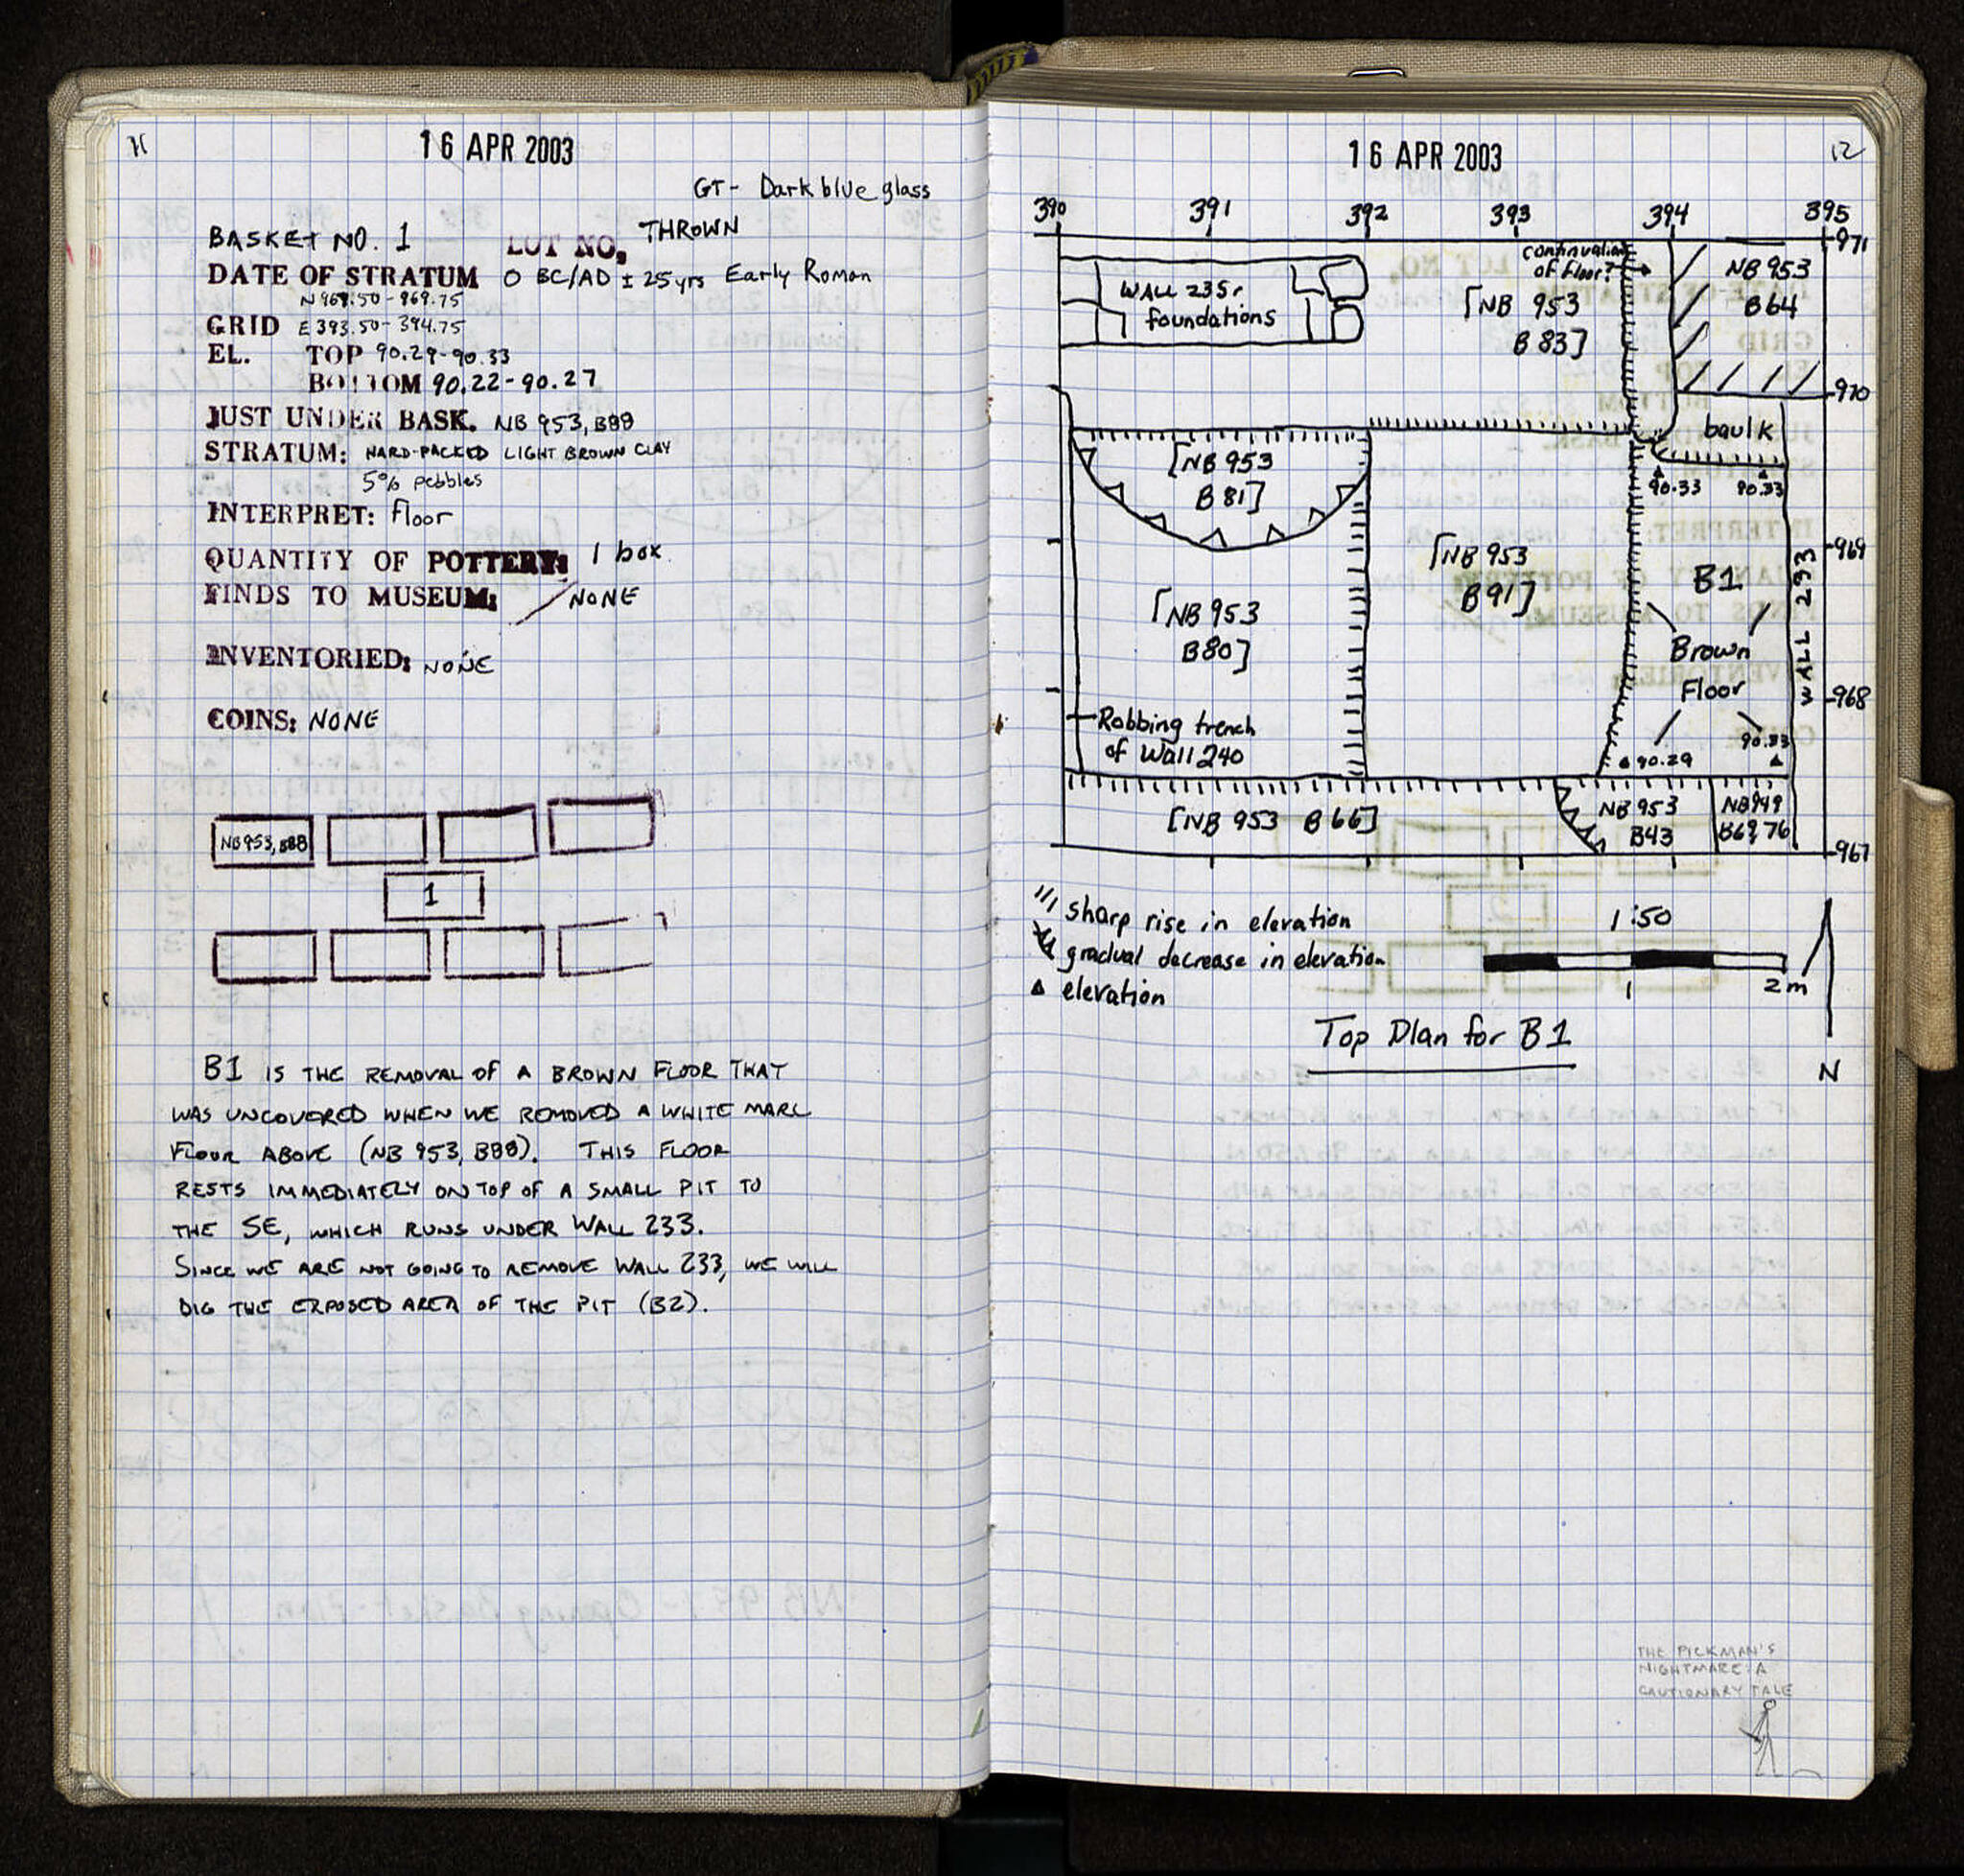 11
16 APR 2003
GT- Dark blue glass
BASKET NO. 1 LOT NO. THROWN
DATE OF STRATUM 0 BC/AD ± 25 yrs Early Roman
N 967.50-969.75
GRID E 393.50-394.75
EL. TOP 90.29-90.33
BOTTOM 90.22-90.27
JUST UNDER BASK. NB 953, B88
STRATUM: HARD-PACKED LIGHT BROWN CLAY
5% pebbles
INTERPRET: floor
QUANTITY OF POTTERY: 1 box
FINDS TO MUSEUM: NONE
INVENTORIED: NONE
COINS: NONE
NB 953, B88
1
B1 IS THE REMOVAL OF A BROWN FLOOR THAT
WAS UNCOVERED WHEN WE REMOVED A WHITE MARL
FLOOR ABOVE (NB 953, B88). THIS FLOOR
RESTS IMMEDIATELY ON TOP OF A SMALL PIT TO
THE SE, WHICH RUNS UNDER WALL 233.
SINCE WE ARE NOT GOING TO REMOVE WALL 233, WE WILL
DIG THE EXPOSED AREA OF THE PIT (B2).
16 APR 2003
12
390 391 392 393 394 395
971
continuation
of floor?
WALL 235
foundations
[NB 953
B 83]
NB 953
B64
970
baulk
90.33 90.33
[NB 953
B 81]
969
[NB 953
B 91]
B1
WALL 293
[NB 953
B80]
Brown
Floor
968
Robbing trench
of Wall 240
90.33
90.29
[NB 953 B 66]
NB 953
B43
NB949
B69, 76
967
sharp rise in elevation
gradual decrease in elevation
elevation
1:50
1 2m
N
Top Plan for B1
THE PICKMAN'S
NIGHTMARE: A
CAUTIONARY TALE